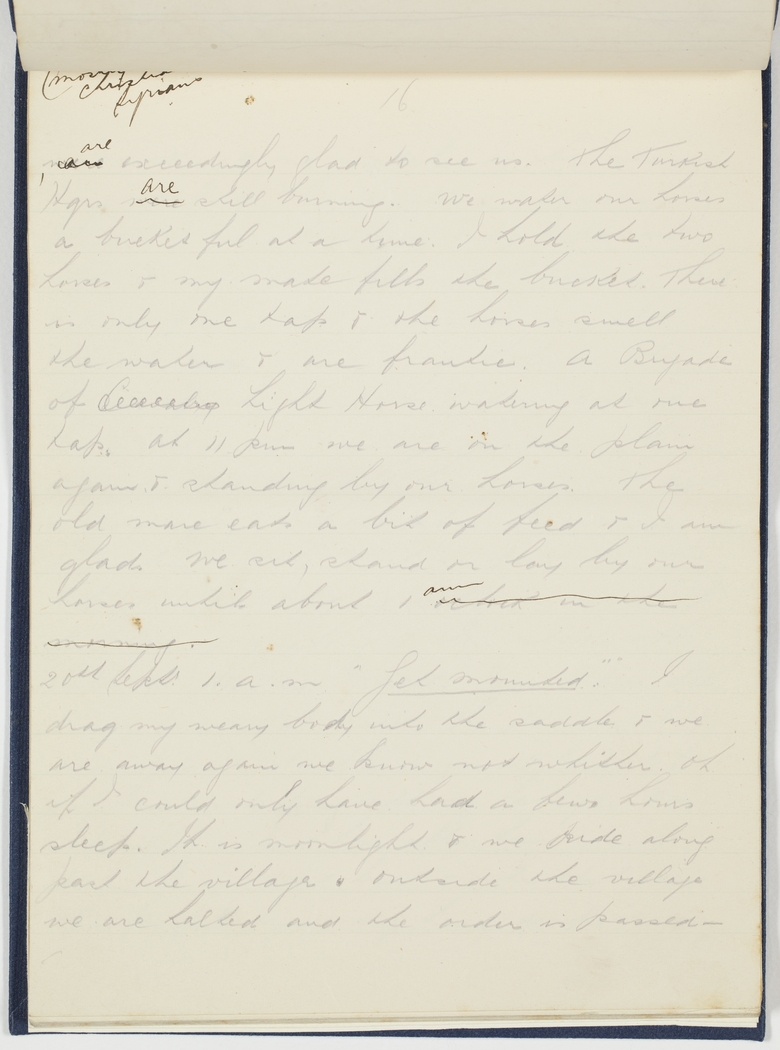 (mostly
Christian
Syrians
16
are
were exceedingly glad to see us. The Turkish
are
Hqrs were still burning. We water our horses
a bucket ful at a time. I hold the two
horses & my mate fills the bucket. There
is only one tap & the horses smell
the water & are frantic. A Brigade
of Light Horse watering at one
tap. At 11 pm we are on the plain
again & standing by our horses. The
old mare eats a bit of feed & I am
glad. We sit, stand or lay by our
am
horses until about 1 in the
morning.
20th Sept. 1. a.m "Get mounted". I
drag my weary body into the saddle & we
are away again we know not whither. Oh
if I could only have had a few hours
sleep. It is moonlight & we ride along
past the village. outside the village
we are halted and the order is passed—